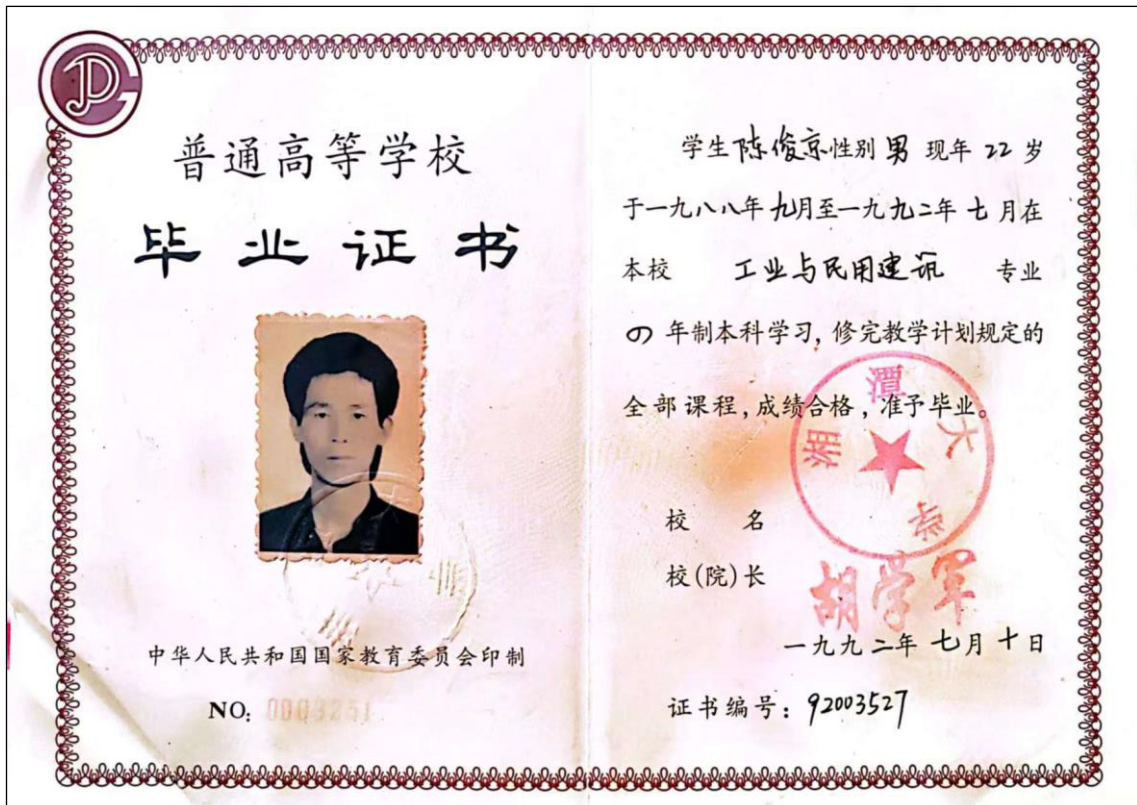 普通高等学校
毕业证书
中华人民共和国国家教育委员会印制
NO: 0003251
学生陈俊京性别男现年22岁
于一九八八年九月至一九九二年七月在
本校 工业与民用建筑 专业
四年制本科学习，修完教学计划规定的
全部课程，成绩合格，准予毕业。
湘潭大学
校名
校(院)长 胡
一九九二年七月十日
证书编号：92003527